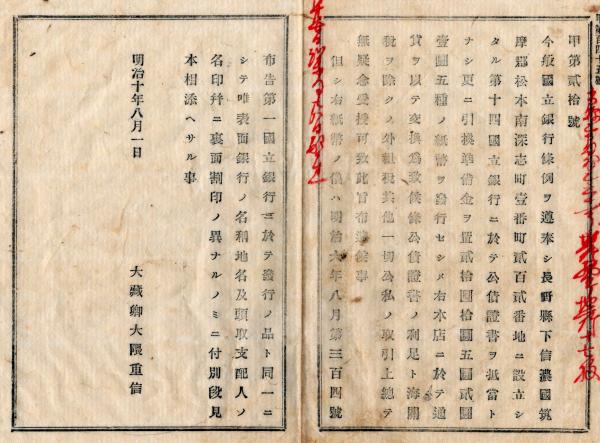 甲第貳拾號
今般國立銀行條例ヲ遵奉シ長野縣下信濃國筑
摩郡松本南深志町壹番町貳百貳番地ニ設立シ
タル第十四國立銀行ニ於テ公債證書ヲ抵當ト
ナシ更ニ引換準備金ヲ置貳拾圓拾圓五圓貳圓
壹圓五種ノ紙幣ヲ發行セシメ右本店ニ於テ通
貨ヲ以テ交換爲致候條公債證書ノ利足ト海關
稅ヲ除クノ外租稅其他一切公私ノ取引上總テ
無疑念受授可致此旨布達候事
但シ右紙幣ノ儀ハ明治六年八月第三百四號
布告第一國立銀行ニ於テ發行ノ品ト同一ニ
シテ唯表面銀行ノ名稱地名及頭取支配人ノ
名印幷ニ裏面割印ノ異ナルノミニ付別段見
本相添ヘサル事
明治十年八月一日
大藏卿大隈重信